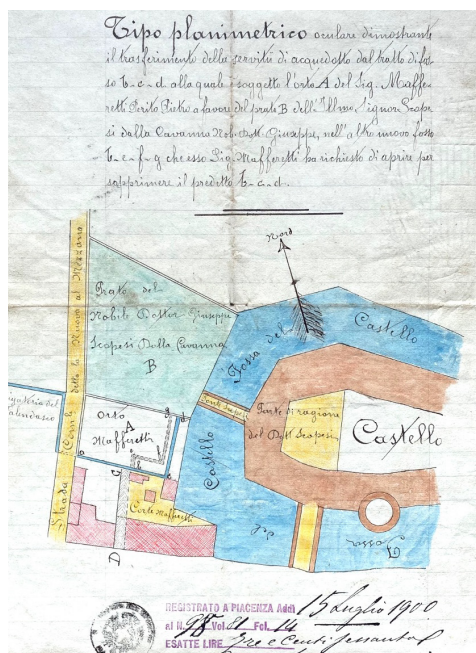 Tipo planimetrico oculare dimostrante
il trasferimento della servitù di acquedotto dal tratto di fos-
so b-c-d alla quale è soggetto l'orto A del Sig. Maffe-
retti Perito Pietro a favore del prato B dell'Illmo Signor Scope-
si dalla Cavanna Nob. Dott. Giuseppe, nell'altro nuovo fosso
b-e-f-g che esso Sig. Mafferetti ha richiesto di aprire per
sopprimere il predetto b-c-d.
Nord
Strada Comle detta la Nuova al Mezzano
Prato del
Nobile Dottor Giuseppe
Scopesi Dalla Cavanna
B
Fossa del
Castello
Orto
A
Mafferetti
Castello
Parte di ragione
del Dott. Scopesi
Castello
Corte Mafferetti
del
Fossa
REGISTRATO A PIACENZA Addì 15 Luglio 1900
al N. 98 Vol 81 Fol. 14
ESATTE LIRE Tre e Centi sessanta